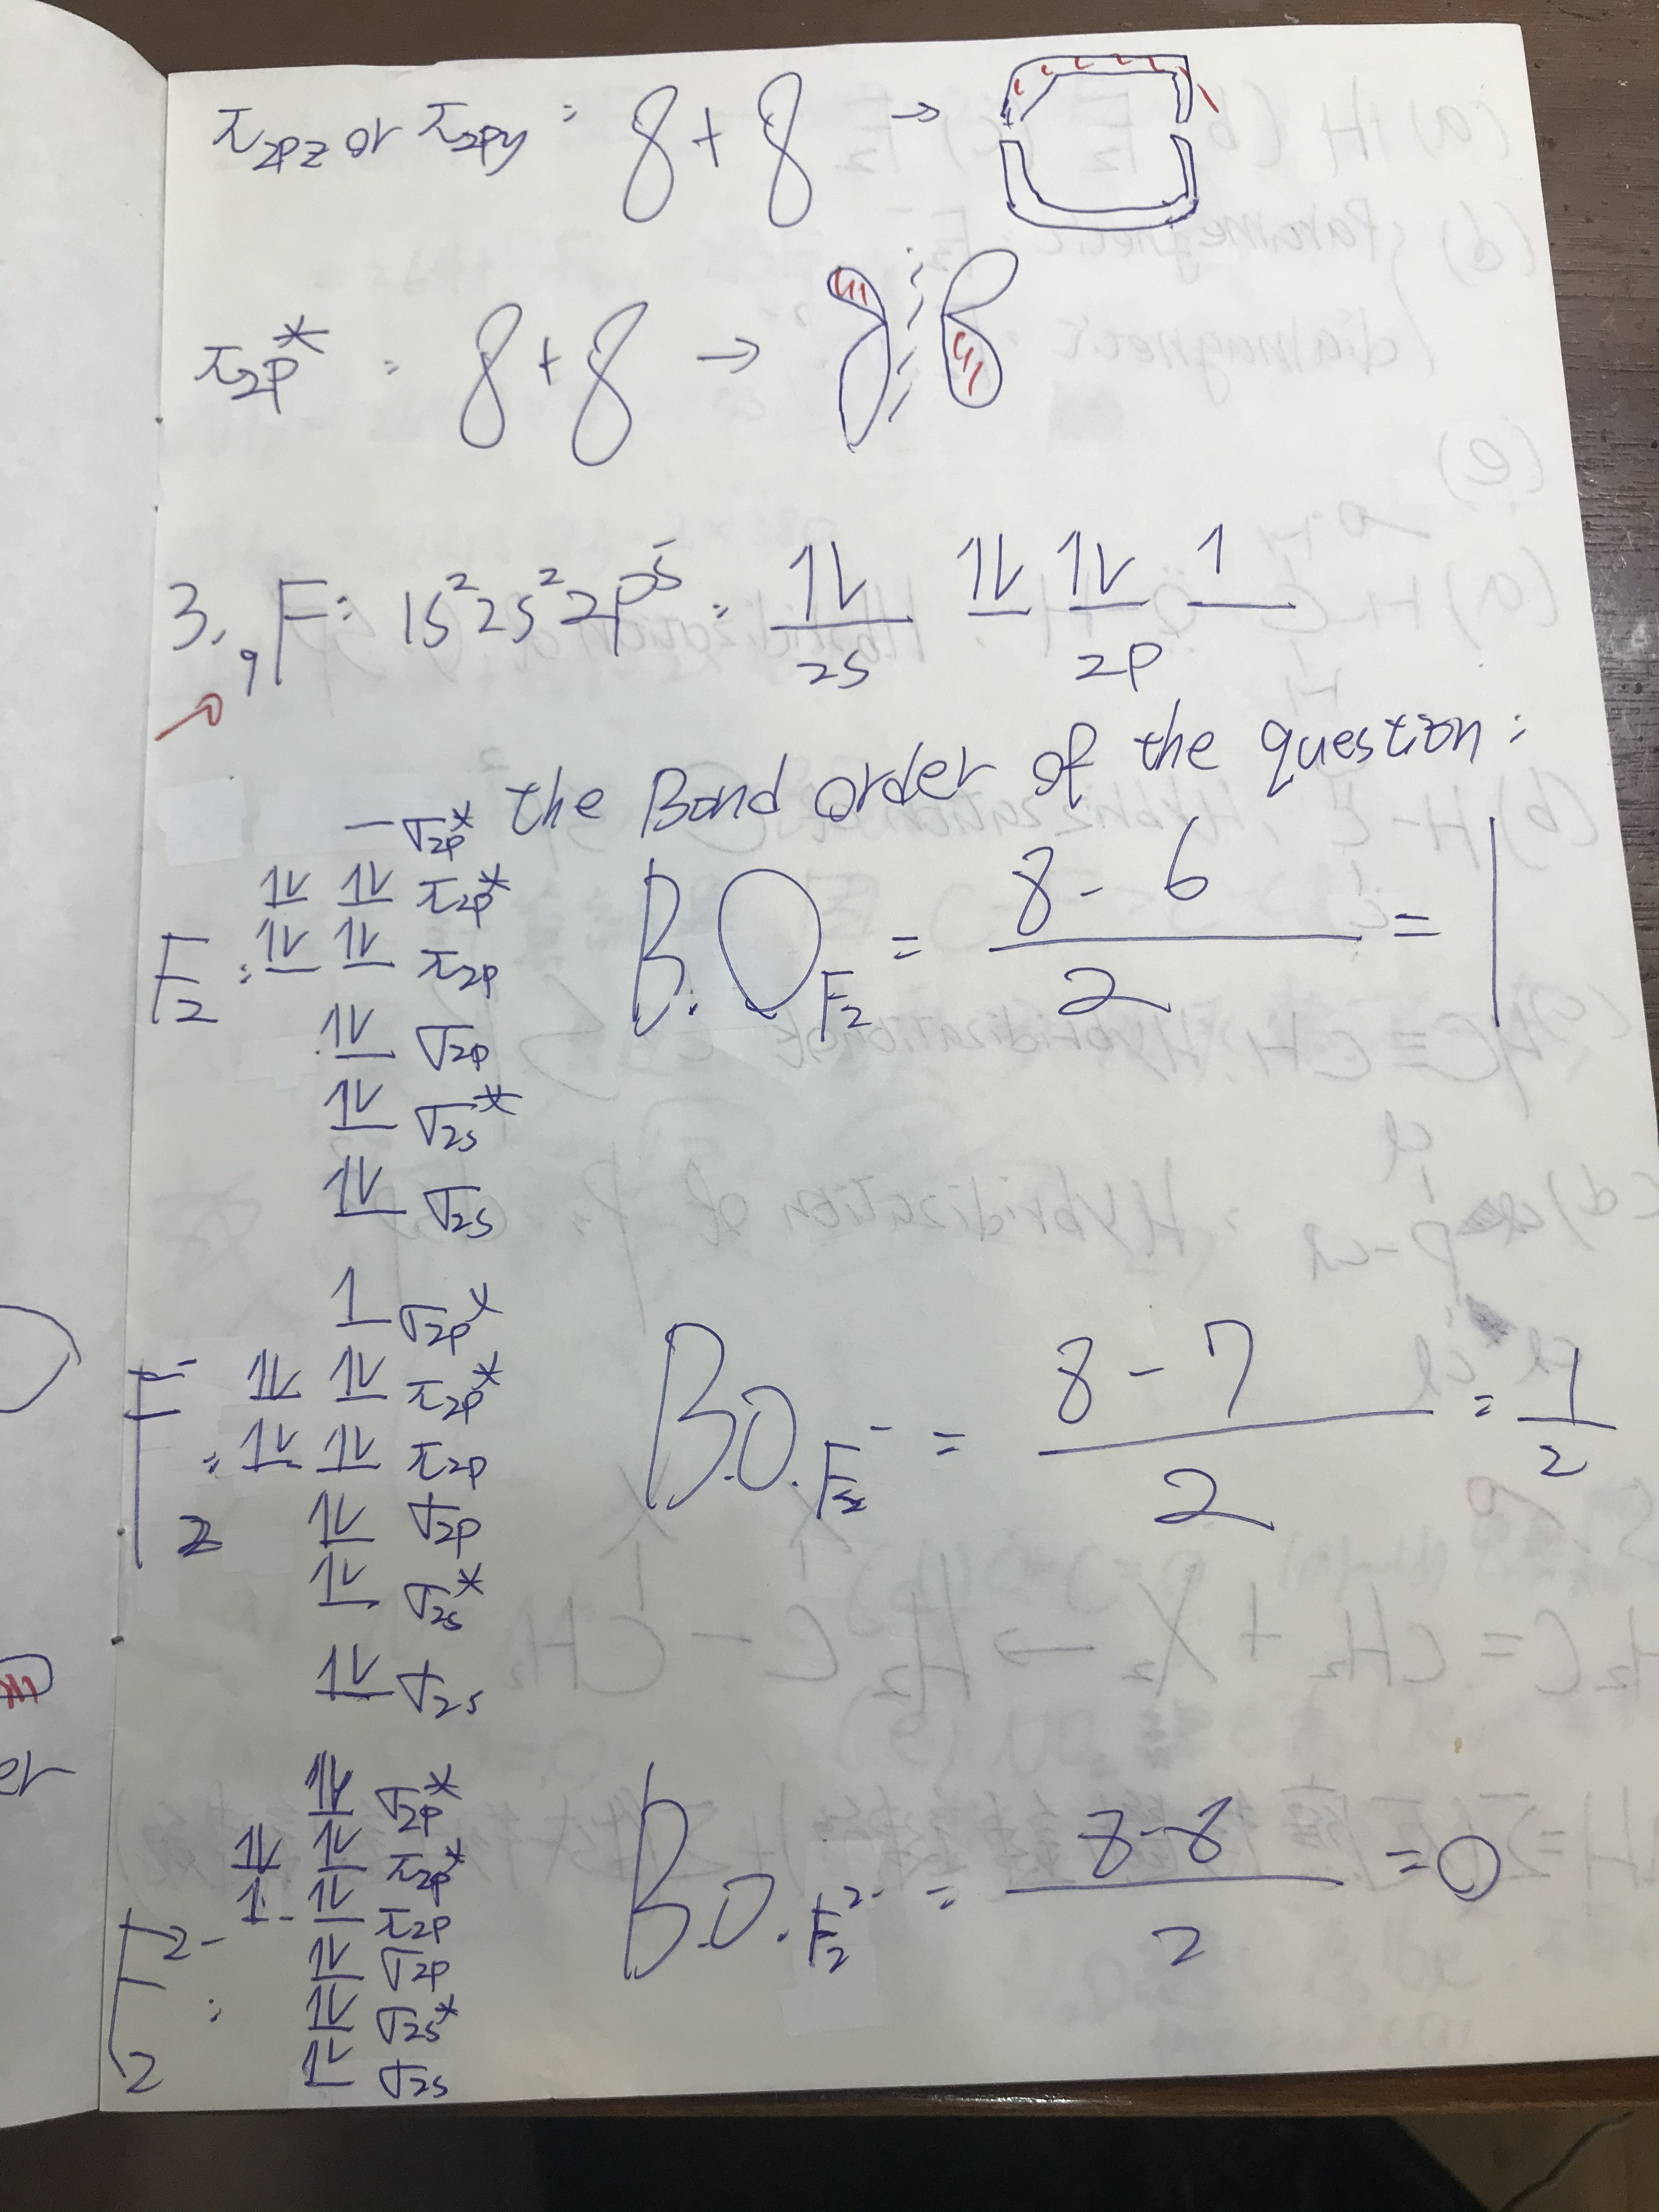 π2pz or π2py : 8 + 8 →
π2p* : 8 + 8 →
3. 9F: 1s²2s²2p⁵ : 1L 1L 1L 1
2s 2p
the Bond order of the question:
σ2p*
1L 1L π2p*
F2 : 1L 1L π2p
1L σ2p
1L σ2s*
1L σ2s
B.O F2 = 8 - 6 / 2 = 1
1 σ2p*
1L 1L π2p*
F2⁻ : 1L 1L π2p
1L σ2p
1L σ2s*
1L σ2s
B.O. F2⁻ = 8 - 7 / 2 = 1/2
1L σ2p*
1L 1L π2p*
1 1L π2p
F2²⁻ : 1L σ2p
1L σ2s*
1L σ2s
B.O. F2²⁻ = 8-8 / 2 = 0
er